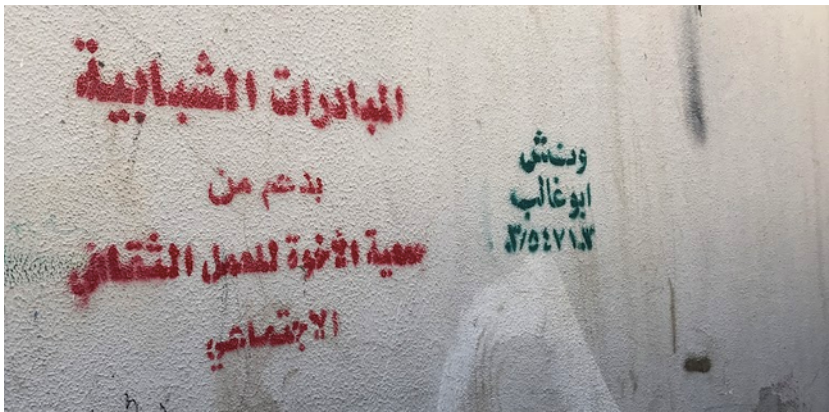 المبادرات الشبابية
بدعم من
جمعية الأخوة للعمل الثقافي
الاجتماعي
ونش
ابو غالب
٠٣/٥٤٧١٠٣